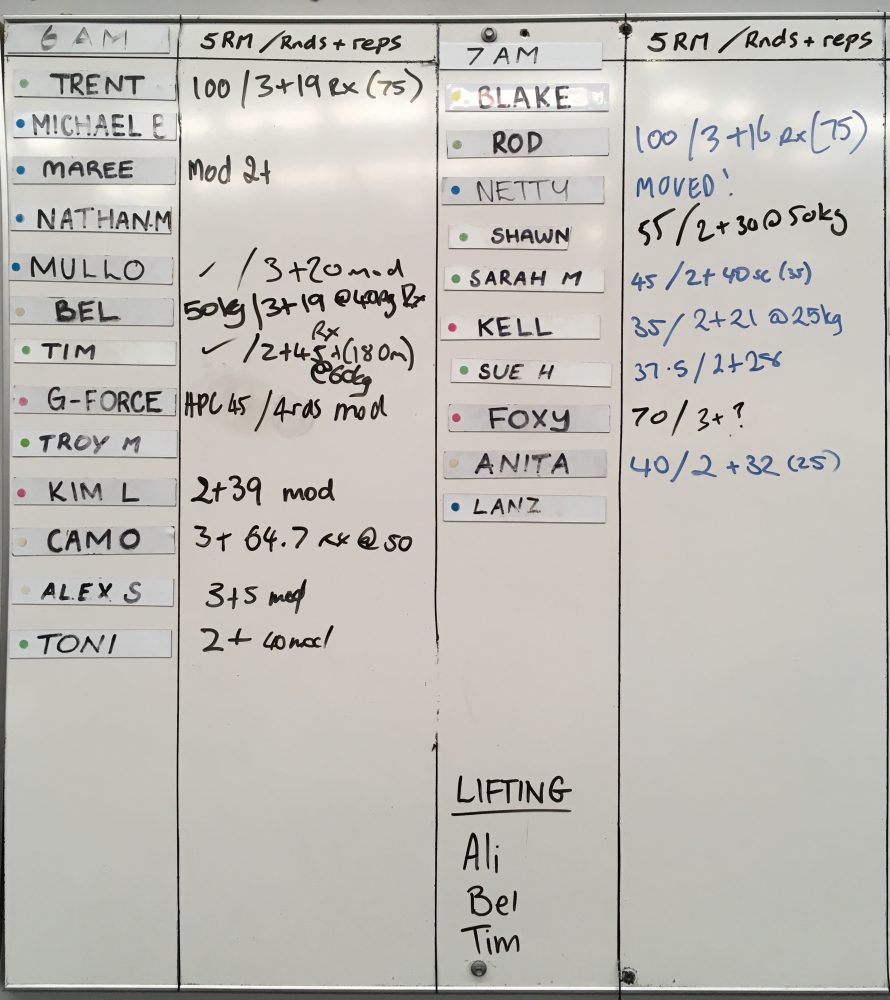 6 AM 5RM / Rnds + reps
TRENT 100 / 3+19 Rx (75)
MICHAEL B
MAREE Mod 2+
NATHAN.M
MULLO ✓ / 3+20 mod
BEL 50kg / 3+19 @40kg Rx
TIM ✓ / 2+45 Rx (180m) @60kg
G-FORCE HPC 45 / 4rds mod
TROY M
KIM L 2+39 mod
CAMO 3+ 64.7 Rx @ 50
ALEX S 3+5 mod
TONI 2+ 40 mod
7 AM 5RM / Rnds + reps
BLAKE
ROD 100 / 3+16 Rx (75)
NETTY MOVED!
SHAWN 55 / 2+30 @ 50kg
SARAH M 45 / 2+40 sc (35)
KELL 35 / 2+21 @25kg
SUE H 37.5 / 2+28
FOXY 70 / 3+ ?
ANITA 40 / 2 +32 (25)
LANZ
LIFTING
Ali
Bel
Tim